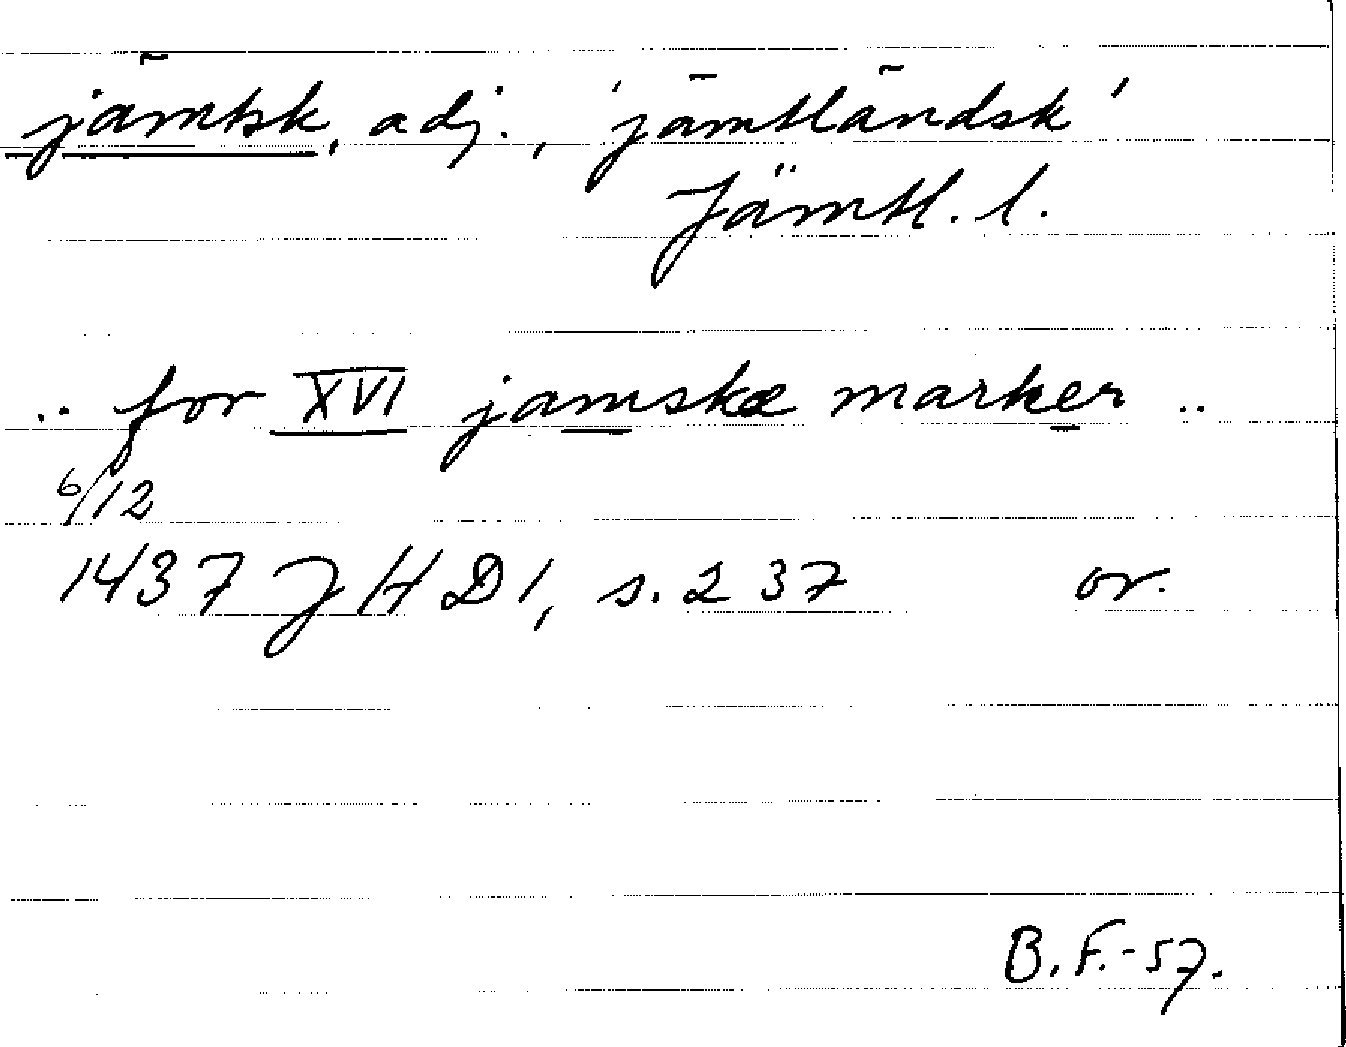 jämtsk, adj., 'jämtländsk'
Jämtl. l.
.. for XVI jamskæ marker ..
6/12
1437 JHD 1, s. 237 or.
B.F.-57.